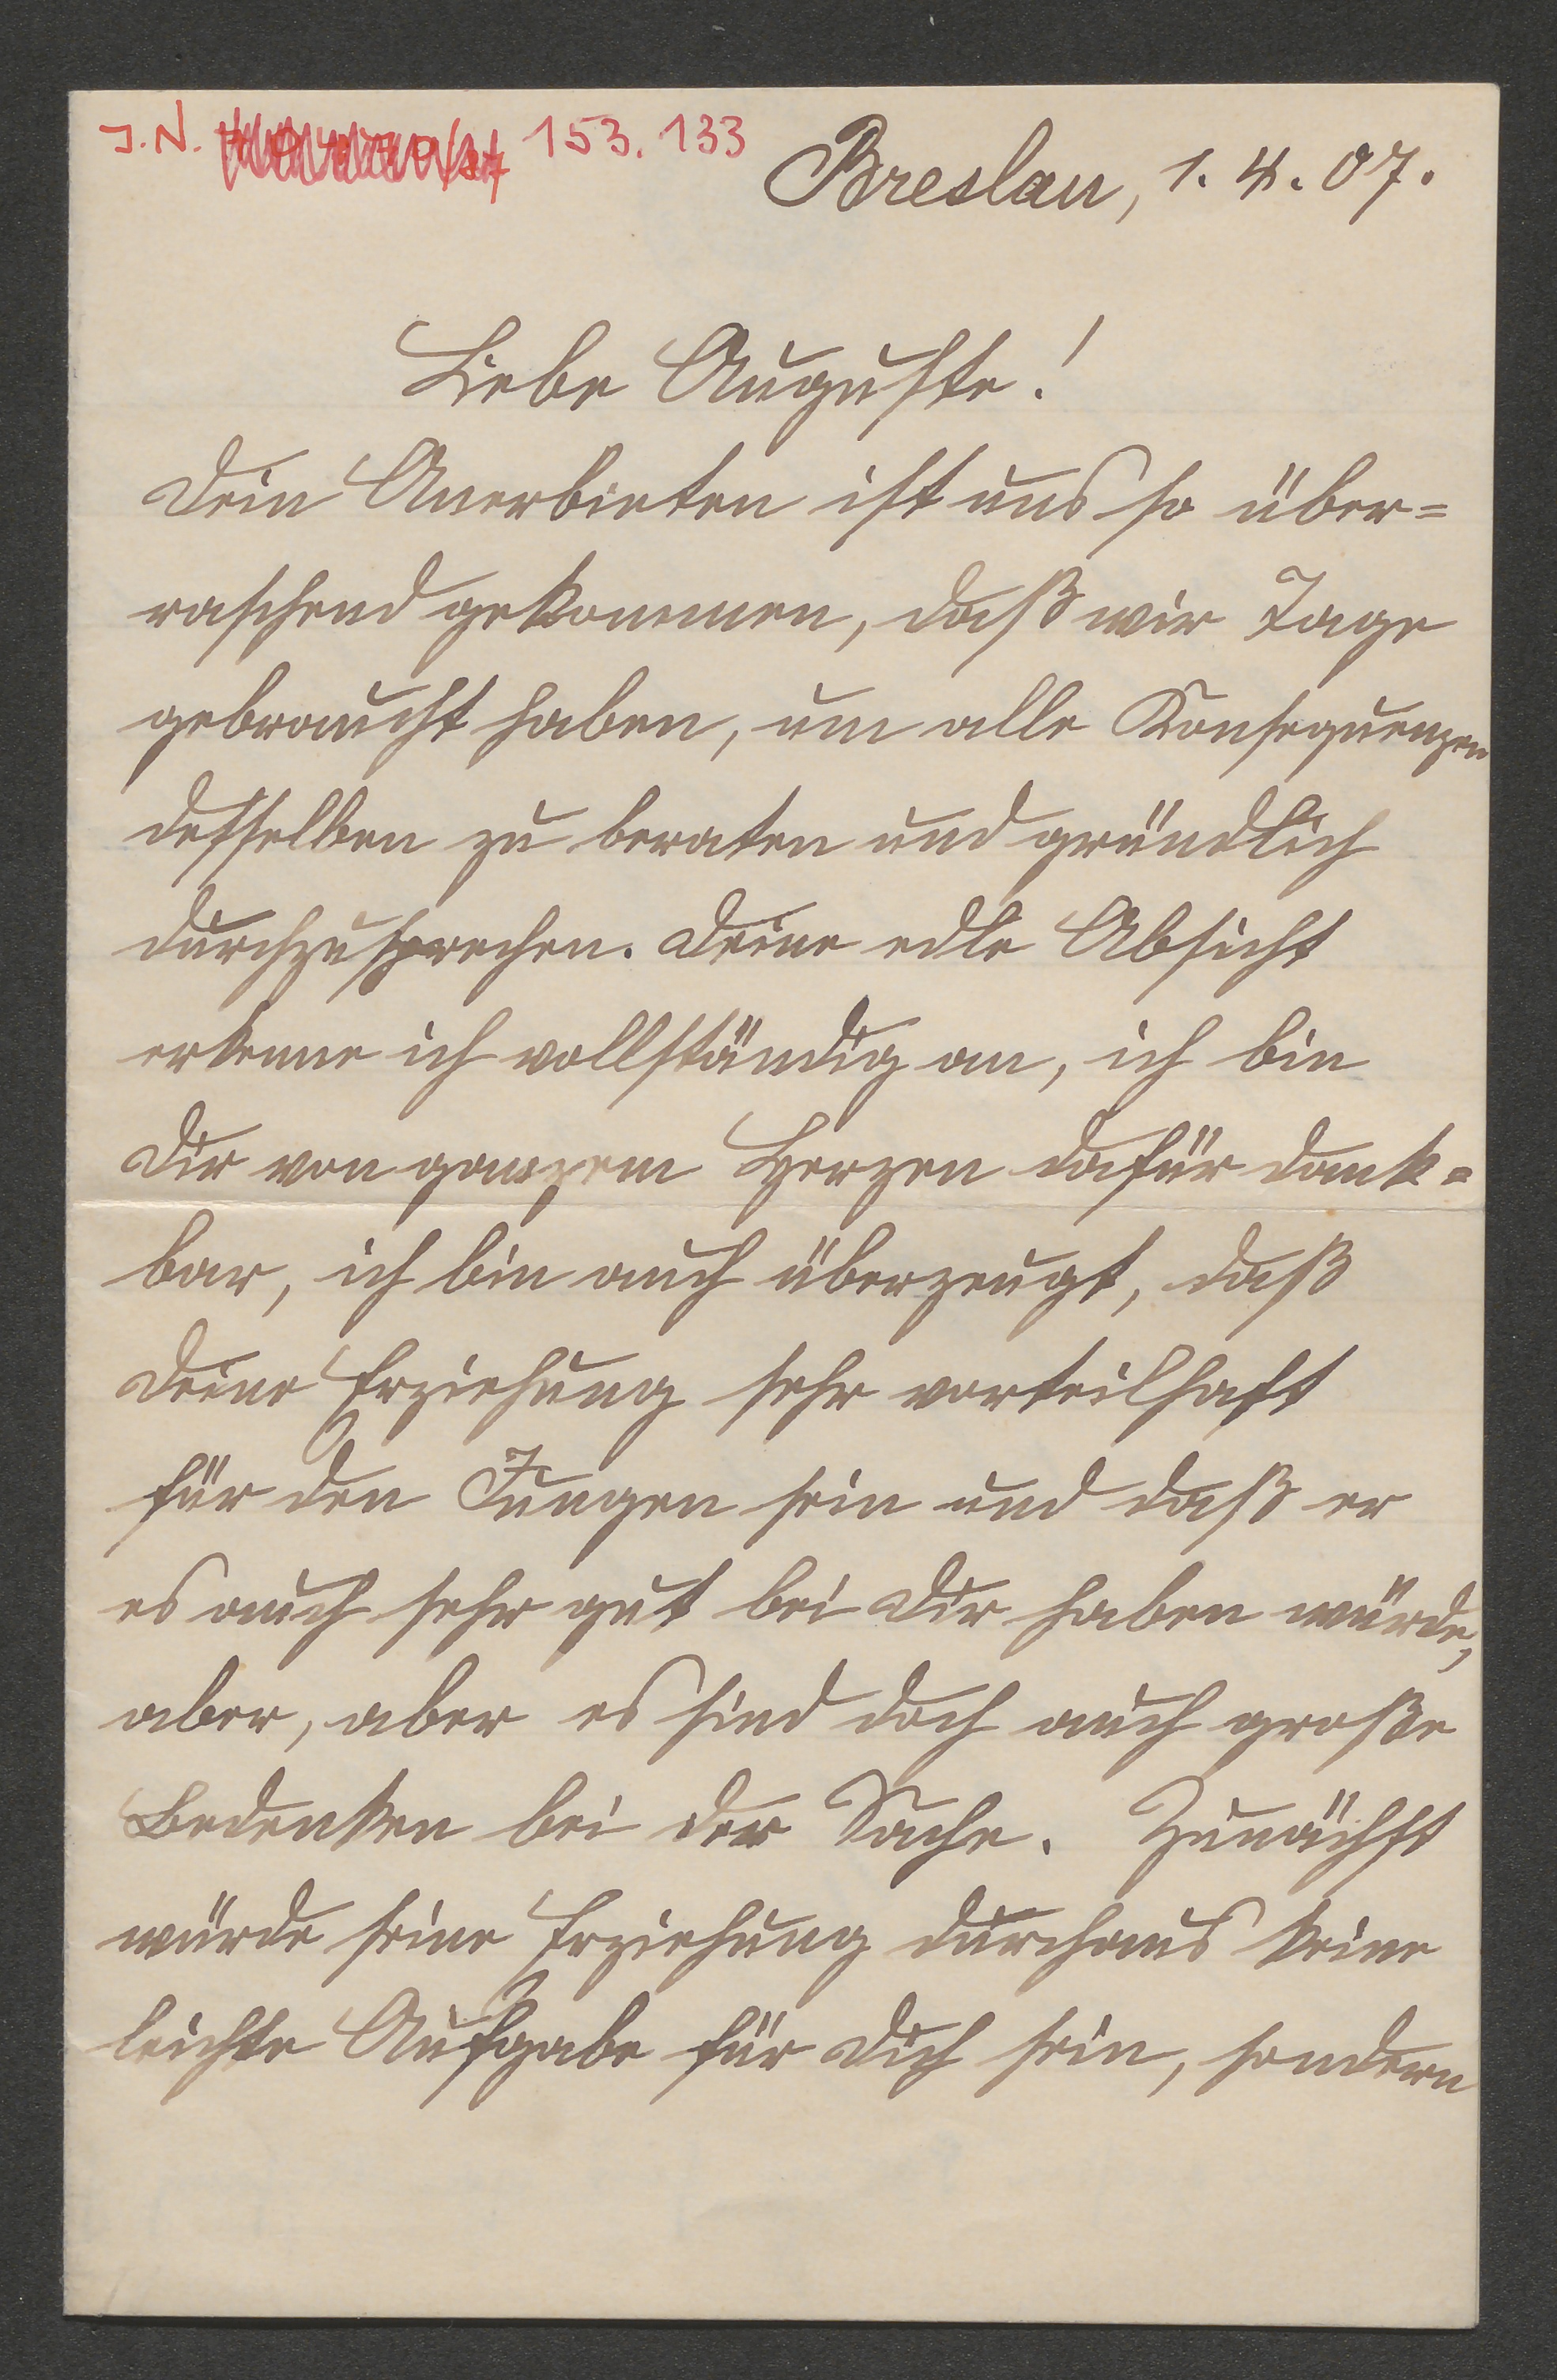 J.N. 153.133
Breslau, 1. 4. 07.
Liebe Auguste!
Dein Anerbieten ist uns so über=
raschend gekommen, daß wir Tage
gebraucht haben, um alle Konsequenzen
desselben zu beraten und gründlich
durchzusprechen. Deine edle Absicht
erkenne ich vollständig an, ich bin
Dir von ganzem Herzen dafür dank=
bar, ich bin auch überzeugt, daß
Deine Erziehung sehr vorteilhaft
für den Jungen sein und daß er
es auch sehr gut bei Dir haben würde,
aber, aber es sind doch auch große
Bedenken bei der Sache. Zunächst
würde seine Erziehung durchaus keine
leichte Aufgabe für Dich sein, sondern